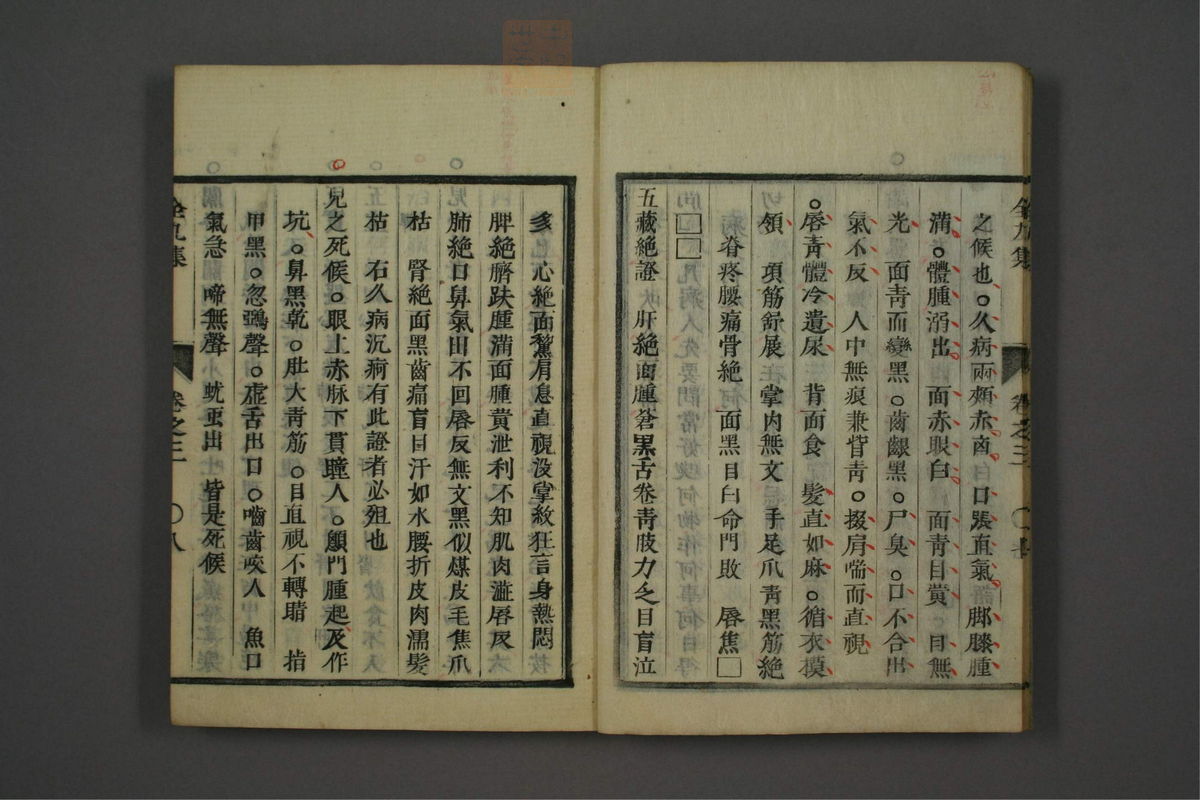 之候也久病兩頰赤　口張直氣　脚膝腫
滿體腫溺出　面赤眼白　面青目黃　目無
光　面青而變黑齒齦黑尸臭口不合出
氣不反　人中無痕兼背青掇肩喘而直視
唇青體冷遺尿　背面食　髮直如麻循衣摸
領　項筋舒展　掌內無文　手足爪青黑筋絶
脊疼腰痛骨絶　面黑目白命門敗　唇焦□
□□
五藏絶證　肝絶面腫蒼黒舌卷青肢力乏目盲泣
多　心絶面黧肩息直視沒掌紋狂言身熱悶
脾絶臍趺腫滿面腫黄泄利不知肌肉澁唇反
肺絶口鼻氣出不回唇反無文黑似煤皮毛焦爪
枯　腎絶面黑齒痛盲目汗如水腰折皮肉濡髮
枯　右久病沉痾有此證者必殂也
兒之死候眼上赤脉下貫瞳人顖門腫起及作
坑鼻黑乾肚大青筋目直視不轉睛　指
甲黑忽鵶聲虛舌出口嚙齒咬人　魚口
氣急　啼無聲　蚘虫出　皆是死候
全九集
卷之三
八
全九集
卷之三